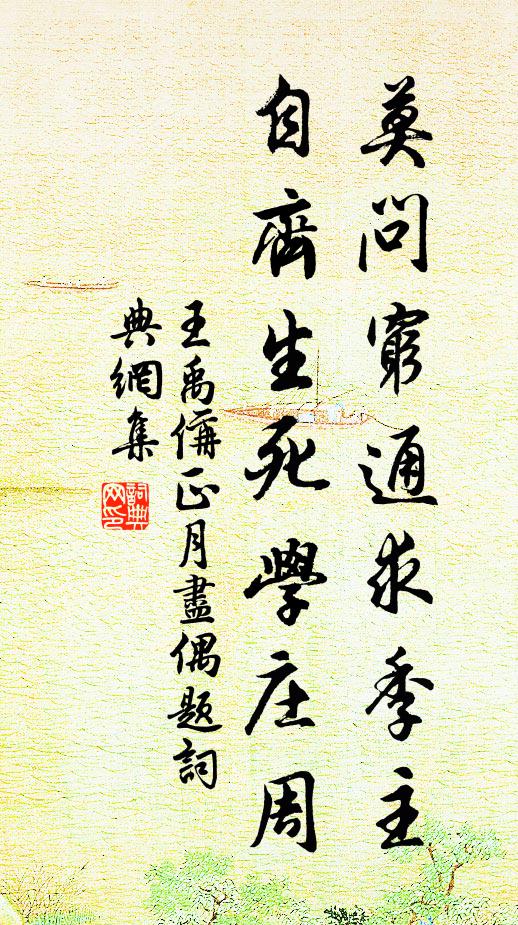 莫問窮通求季主
自齊生死學庄周
王禹偁正月盡偶題詞
典網集
詞典
网印